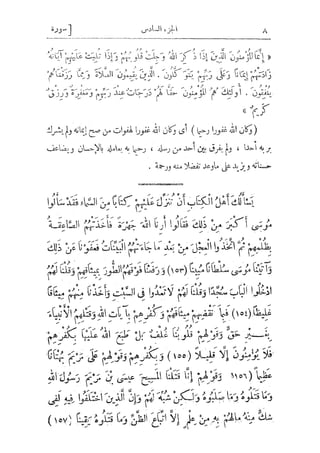 ٨ الجزء السادس [سورة
« إِنَّمَا الْمُؤْمِنُونَ الَّذِينَ إِذَا ذُكِرَ اللهُ وَجِلَتْ قُلُوبُهُمْ وَإِذَا تُلِيَتْ عَلَيْهِمْ آيَاتُهُ
زَادَتْهُمْ إِيمَانًا وَعَلَى رَبِّهِمْ يَتَوَكَّلُونَ . الَّذِينَ يُقِيمُونَ الصَّلَاةَ وَمِمَّا رَزَقْنَاهُمْ
يُنْفِقُونَ . أُولَئِكَ هُمُ الْمُؤْمِنُونَ حَقًّا لَهُمْ دَرَجَاتٌ عِنْدَ رَبِّهِمْ وَمَغْفِرَةٌ وَرِزْقٌ
كَرِيمٌ »
( وكان الله غفورا رحيما ) أى وكان الله غفورا لهفوات من صح إيمانه ولم يشرك
بربه أحدا ، ولم يفرق بين أحد من رسله ، رحيما به يعامله بالإحسان ويضاعف
حسناته ويزيد على ماوعد تفضلا منه ورحمة .
يَسْأَلُكَ أَهْلُ الْكِتَابِ أَنْ تُنَزِّلَ عَلَيْهِمْ كِتَابًا مِنَ السَّمَاءِ فَقَدْ سَأَلُوا
مُوسَى أَكْبَرَ مِنْ ذَلِكَ فَقَالُوا أَرِنَا اللهَ جَهْرَةً فَأَخَذَتْهُمُ الصَّاعِقَةُ
بِظُلْمِهِمْ ثُمَّ اتَّخَذُوا الْعِجْلَ مِنْ بَعْدِ مَا جَاءَتْهُمُ الْبَيِّنَاتُ فَعَفَوْنَا عَنْ ذَلِكَ
وَآتَيْنَا مُوسَى سُلْطَانًا مُبِينًا (١٥٣) وَرَفَعْنَا فَوْقَهُمُ الطُّورَ بِمِيثَاقِهِمْ وَقُلْنَا لَهُمُ
ادْخُلُوا الْبَابَ سُجَّدًا وَقُلْنَا لَهُمْ لَا تَعْدُوا فِي السَّبْتِ وَأَخَذْنَا مِنْهُمْ مِيثَاقًا
غَلِيظًا (١٥٤) فَبِمَا نَقْضِهِمْ مِيثَاقَهُمْ وَكُفْرِهِمْ بِآيَاتِ اللهِ وَقَتْلِهِمُ الْأَنْبِيَاءَ
بِغَيْرِ حَقٍّ وَقَوْلِهِمْ قُلُوبُنَا غُلْفٌ بَلْ طَبَعَ اللهُ عَلَيْهَا بِكُفْرِهِمْ
فَلَا يُؤْمِنُونَ إِلَّا قَلِيلًا (١٥٥) وَبِكُفْرِهِمْ وَقَوْلِهِمْ عَلَى مَرْيَمَ بُهْتَانًا
عَظِيمًا (١٥٦) وَقَوْلِهِمْ إِنَّا قَتَلْنَا الْمَسِيحَ عِيسَى بْنَ مَرْيَمَ رَسُولَ اللهِ
وَمَا قَتَلُوهُ وَمَا صَلَبُوهُ وَلَكِنْ شُبِّهَ لَهُمْ وَإِنَّ الَّذِينَ اخْتَلَفُوا فِيهِ لَفِي
شَكٍّ مِنْهُ مَالَهُمْ بِهِ مِنْ عِلْمٍ إِلَّا اتِّبَاعَ الظَّنِّ وَمَا قَتَلُوهُ يَقِينًا (١٥٧)